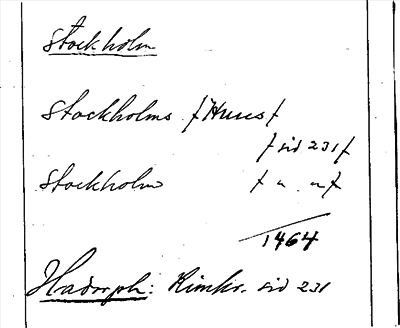 Stockholm
Stockholms /Huus/
/sid 231/
Stockholm / " "/
1464
Hadorph: Rimkr. sid 231